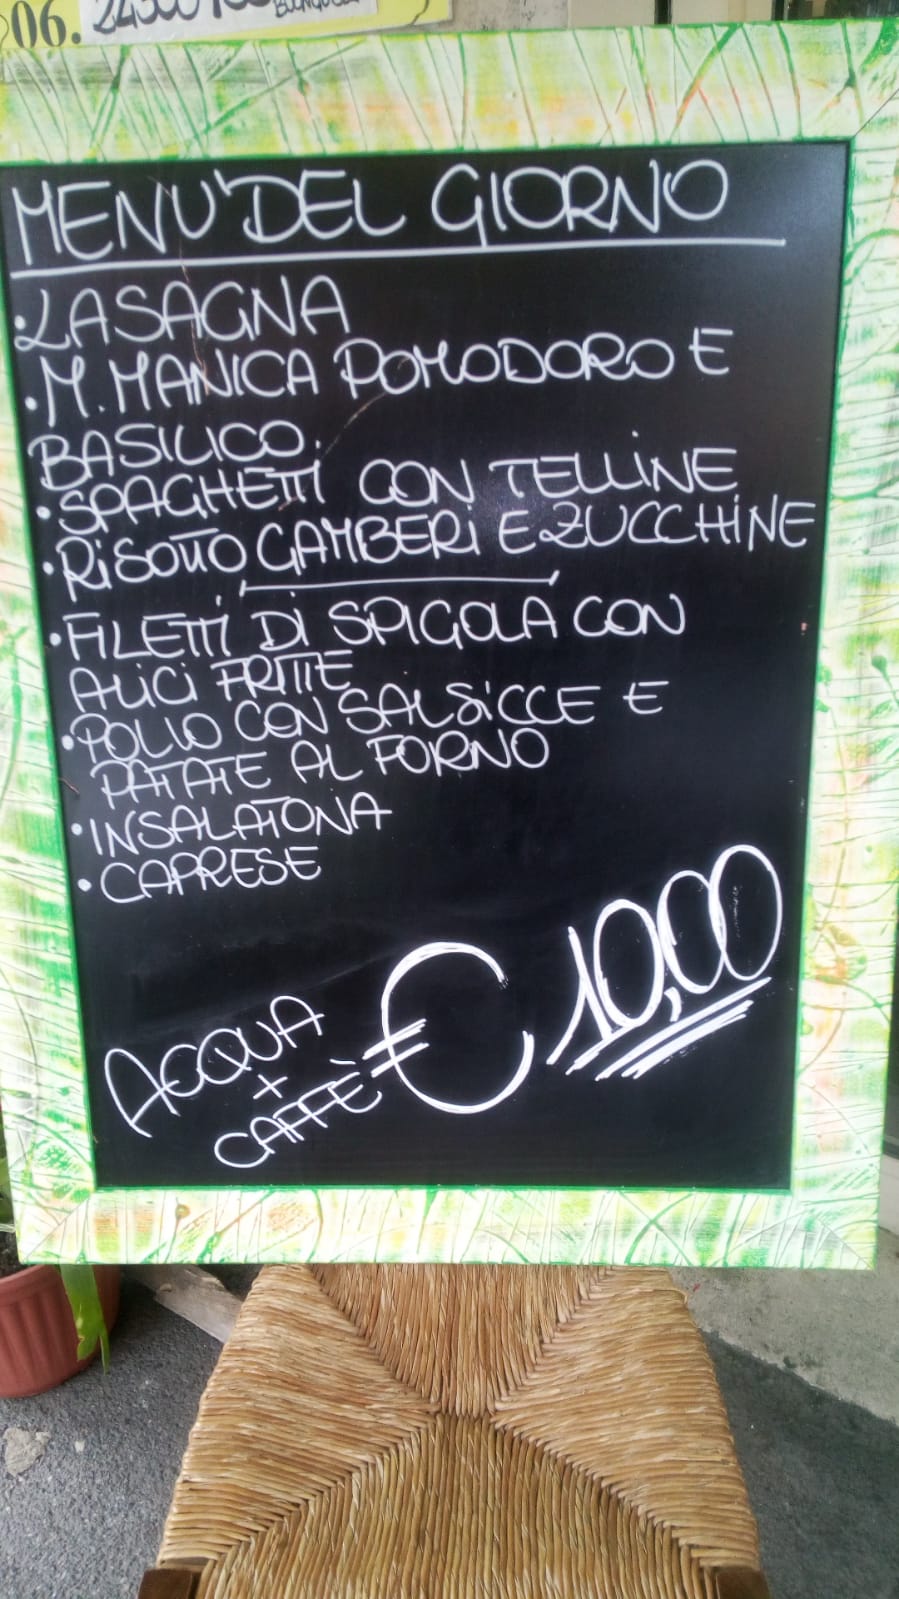 06.
MENU' DEL GIORNO
• LASAGNA
• M. MANICA POMODORO E
BASILICO.
• SPAGHETTI CON TELLINE
• RISOTTO GAMBERI E ZUCCHINE
• FILETTI DI SPIGOLA CON
ALICI FRITTE
• POLLO CON SALSICCE E
PATATE AL FORNO
• INSALATONA
• CAPRESE
ACQUA
+
CAFFÈ
€ 10,00